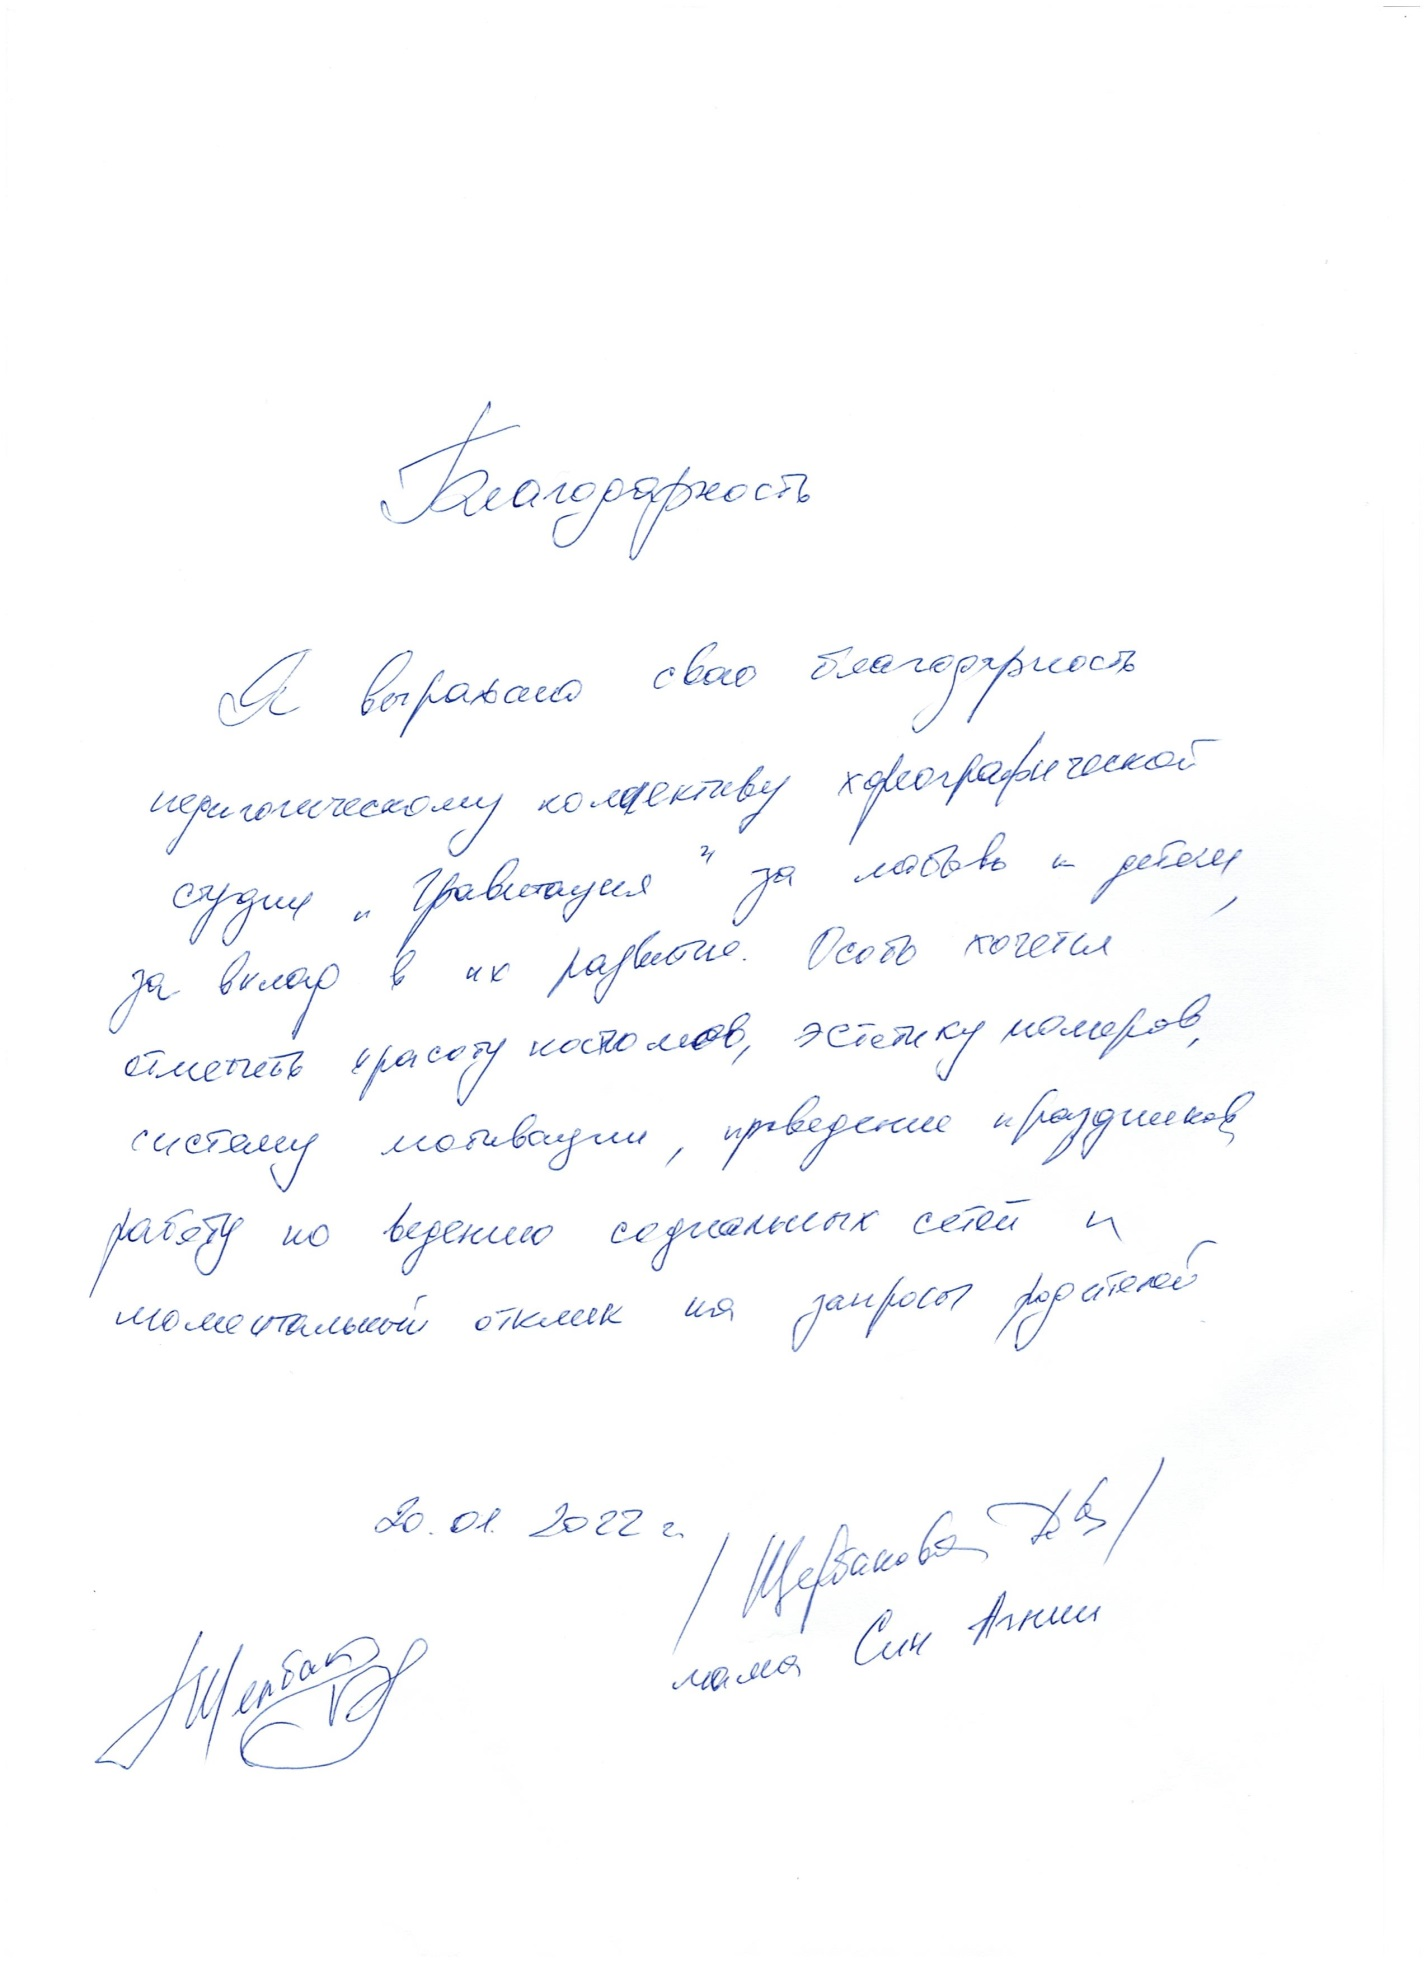 Благодарность
Я выражаю свою благодарность
педагогическому коллективу хореографической
студии „Гравитация" за любовь к детям,
за вклад в их развитие. Особо хочется
отметить красоту костюмов, эстетику номеров,
систему мотивации, проведение праздников,
работу по ведению социальных сетей и
моментальный отклик на запросы родителей
20.01.2022 г.
/Щербакова /
мама Син Агнии